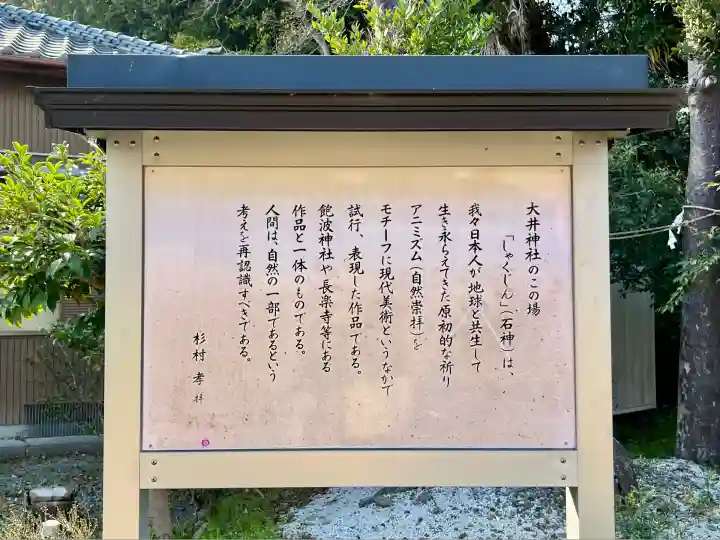 大井神社のこの場
「しゃくしん」（石神）は、
我々日本人が地球と共生して
生き永らえてきた原初的な祈り
アニミズム（自然崇拝）を
モチーフに現代美術というなかで
試行、表現した作品である。
飽波神社や長楽寺等にある
作品と一体のものである。
人間は、自然の一部であるという
考えを再認識すべきである。
杉村 孝 拝